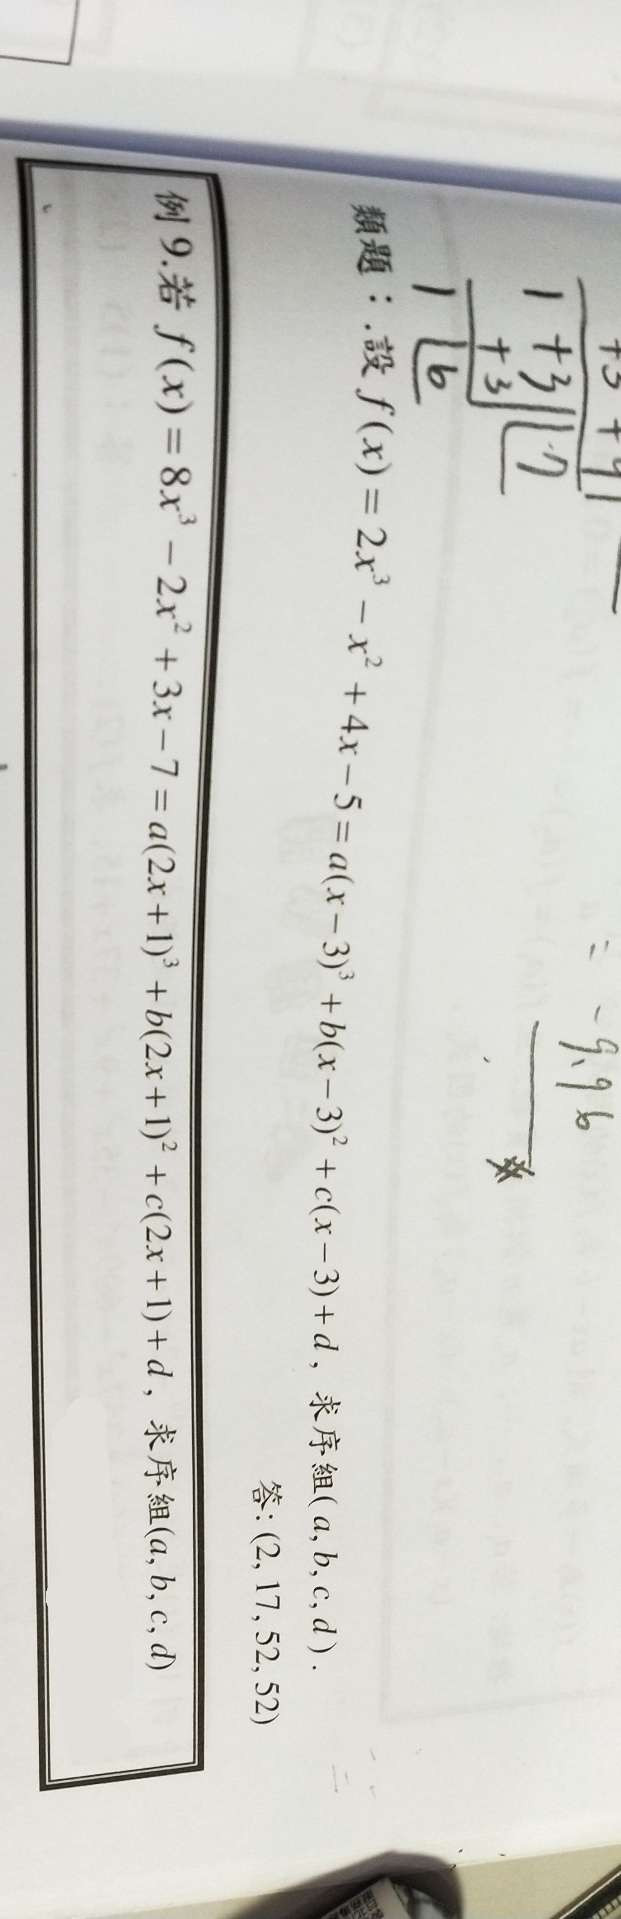 +3 +9
1 +3 | 7
+3
1 | 6
= -9.96
類題:.設 f(x) = 2x³ - x² + 4x - 5 = a(x-3)³ + b(x-3)² + c(x-3) + d, 求序組(a, b, c, d).
答: (2, 17, 52, 52)
例 9.若 f(x) = 8x³ - 2x² + 3x - 7 = a(2x+1)³ + b(2x+1)² + c(2x+1) + d, 求序組(a, b, c, d)